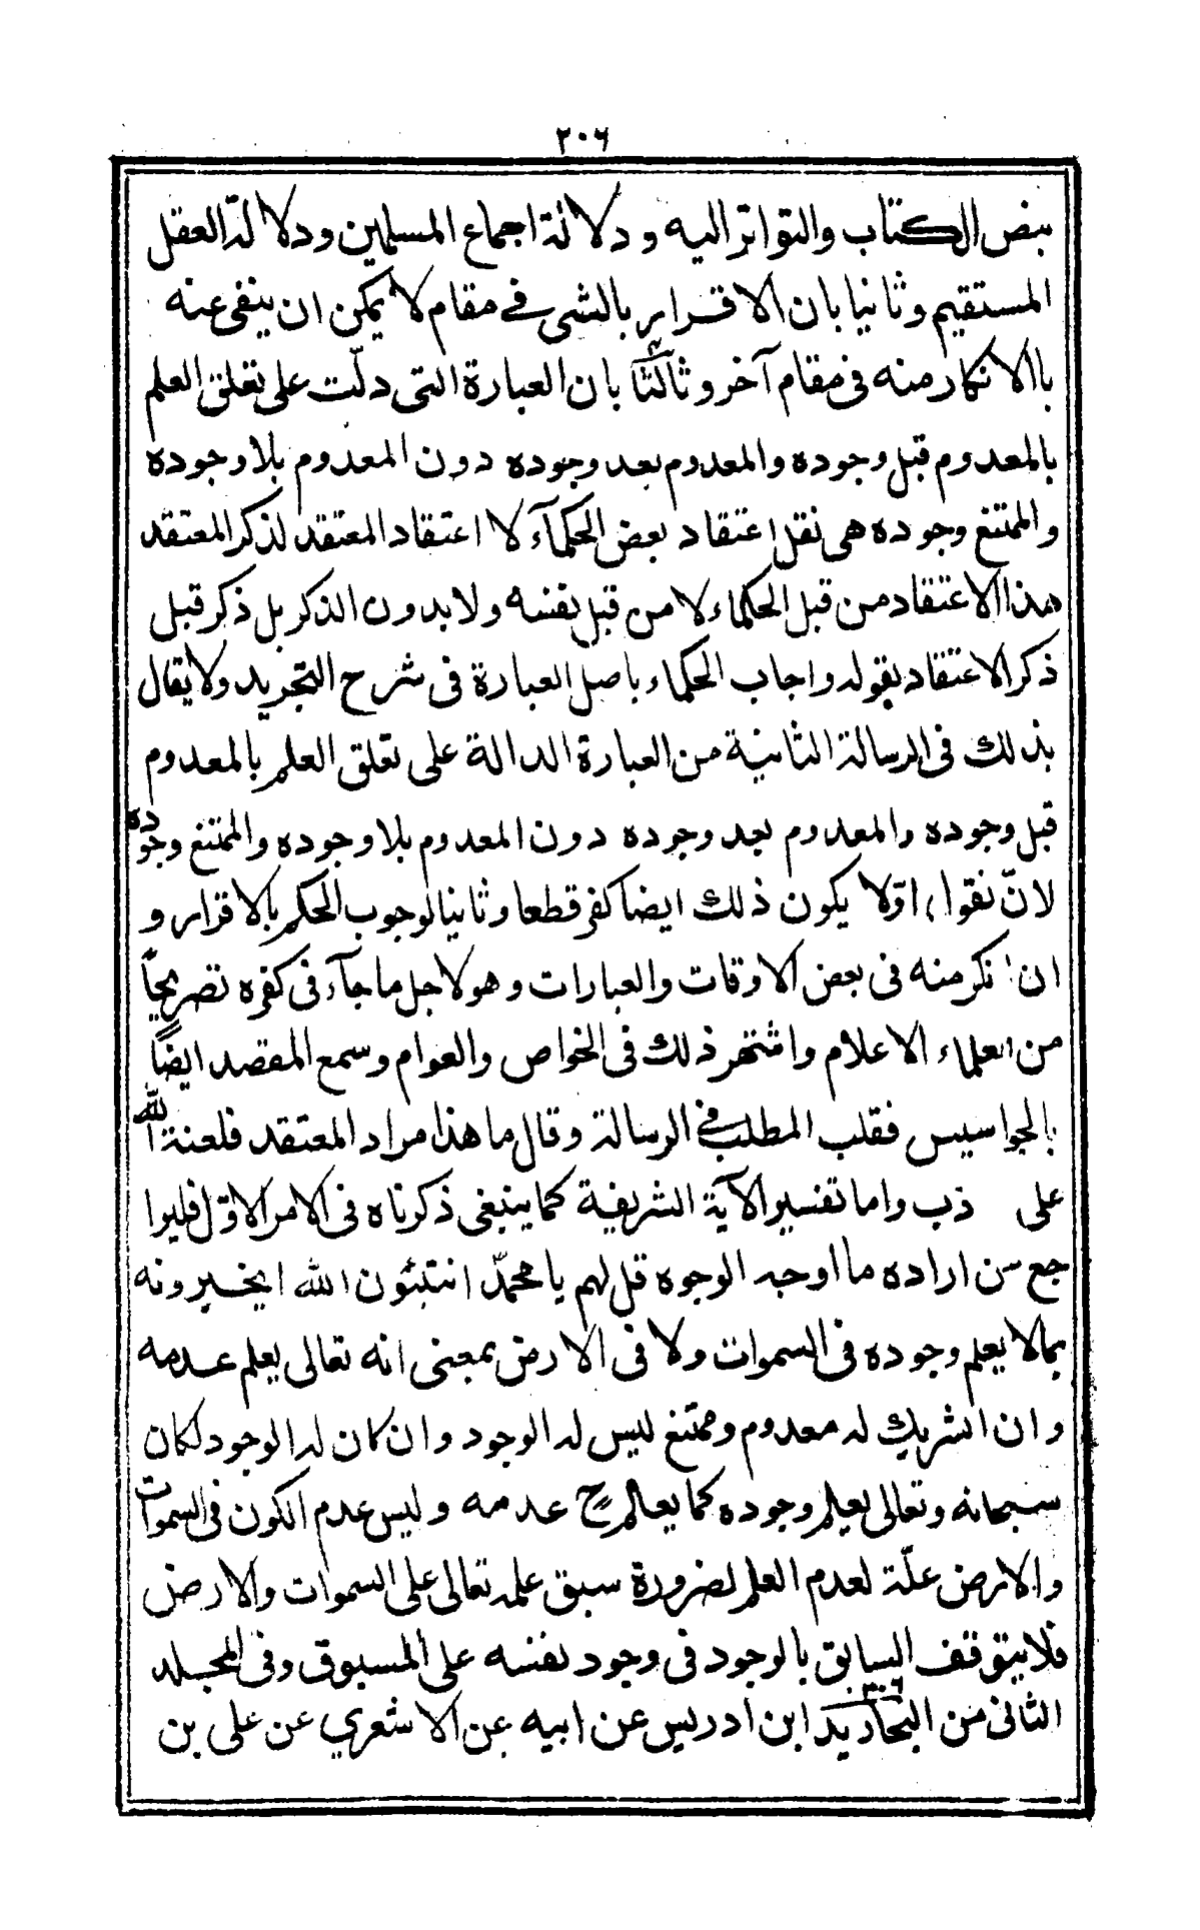 ٢٠٦
بنص الكتاب والتواتر اليه ودلالة اجماع المسلمين ودلالة العقل
المستقيم وثانيا بان الاقرار بالشئ في مقام لا يمكن ان ينفى عنه
باالانكار منه فى مقام آخر وثالثا بان العبارة التى دلّت على تعلق العلم
بالمعدوم قبل وجوده والمعدوم بعد وجوده دون المعدوم بلا وجوده
والممتنع وجوده هى نقل اعتقاد بعض الحكمآء لا اعتقاد المعتقد لذكر المعتقد
هذا الاعتقاد من قبل الحكماء لا من قبل نفسه ولا بدون الذكر بل ذكر قبل
ذكر الاعتقاد بقوله واجاب الحكماء باصل العبارة فى شرح التجريد ولا يقال
بذلك فى الرسالة الثانية من العبارة الدالة على تعلق العلم بالمعدوم
قبل وجوده والمعدوم بعد وجوده دون المعدوم بلا وجوده والممتنع وجوده
لانّ نقول اوّلا يكون ذلك ايضا كفر قطعا وثانيا لوجوب الحكم بالاقرار و
ان انكر منه فى بعض الاوقات والعبارات وهو لاجل ما جآء فى كفره تصريحاً
من العلماء الاعلام واشتهر ذلك فى الخواص والعوام وسمع المقصد ايضاً
بالجواسيس فقلب المطلب في الرسالة وقال ما هذا مراد المعتقد فلعنة الله
على ذب واما تفسير الآية الشريفة كما ينبغى ذكرناه فى الامر الاوّل فليرا
جع من اراده ما اوجه الوجوه قل لهم يا محمدّ اتنبئون الله ايخبرونه
بما لا يعلم وجوده فى السموات ولا فى الارض بمعنى انه تعالى يعلم عدمه
وان الشريك له معدوم وممتنع ليس له الوجود وان كان له الوجود لكان
سبحانه وتعالى يعلم وجوده كما يعلم ح عدمه وليس عدم الكون فى السموات
والارض علّة لعدم العلم لضرورة سبق علمه تعالى على السموات والارض
فلا يتوقف السابق بالوجود فى وجود نفسه على المسبوق وفى المجلد
الثانى من البحار يد ابن ادريس عن ابيه عن الاشعري عن على بن